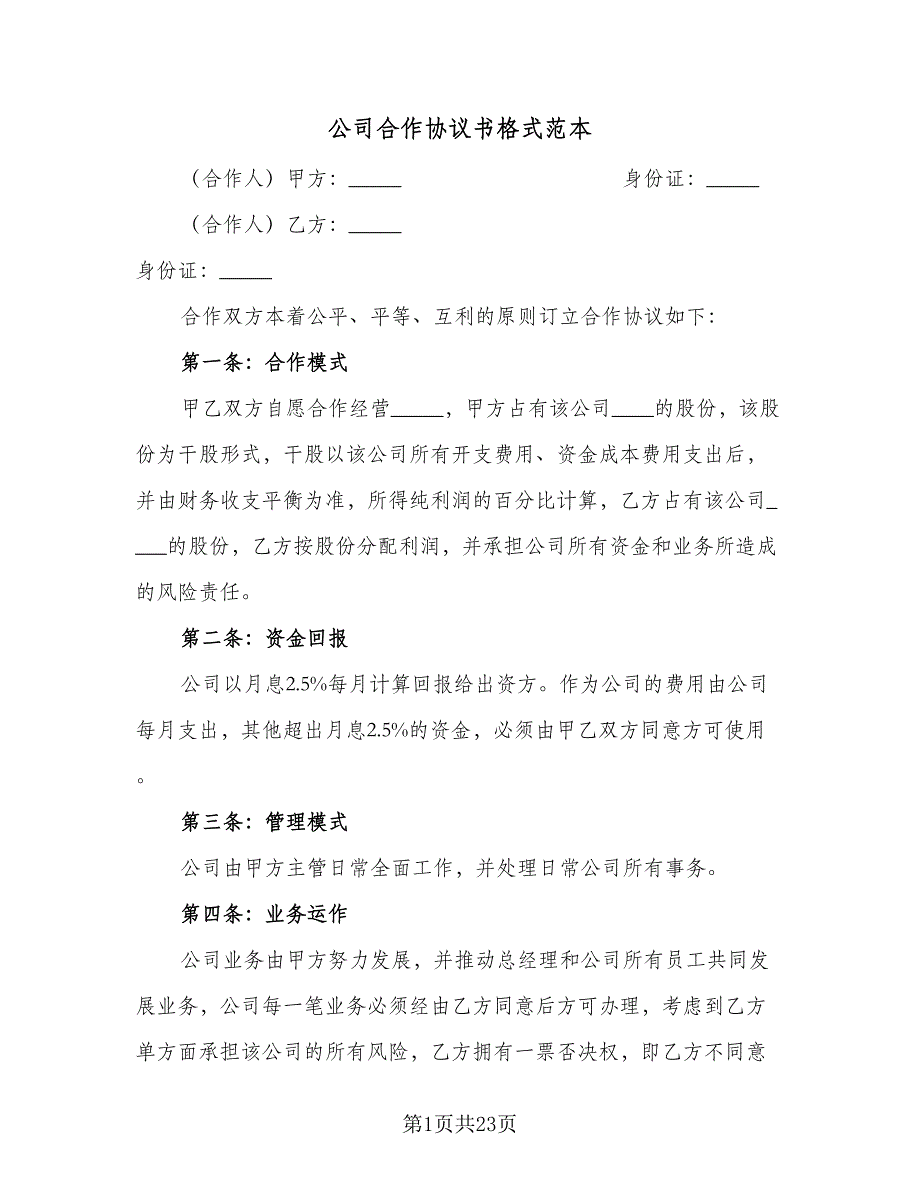 公司合作协议书格式范本
（合作人）甲方：_____ 身份证：_____
（合作人）乙方：_____
身份证：_____
合作双方本着公平、平等、互利的原则订立合作协议如下：
第一条：合作模式
甲乙双方自愿合作经营_____，甲方占有该公司____的股份，该股
份为干股形式，干股以该公司所有开支费用、资金成本费用支出后，
并由财务收支平衡为准，所得纯利润的百分比计算，乙方占有该公司_
___的股份，乙方按股份分配利润，并承担公司所有资金和业务所造成
的风险责任。
第二条：资金回报
公司以月息2.5%每月计算回报给出资方。作为公司的费用由公司
每月支出，其他超出月息2.5%的资金，必须由甲乙双方同意方可使用
。
第三条：管理模式
公司由甲方主管日常全面工作，并处理日常公司所有事务。
第四条：业务运作
公司业务由甲方努力发展，并推动总经理和公司所有员工共同发
展业务，公司每一笔业务必须经由乙方同意后方可办理，考虑到乙方
单方面承担该公司的所有风险，乙方拥有一票否决权，即乙方不同意
第1页共23页